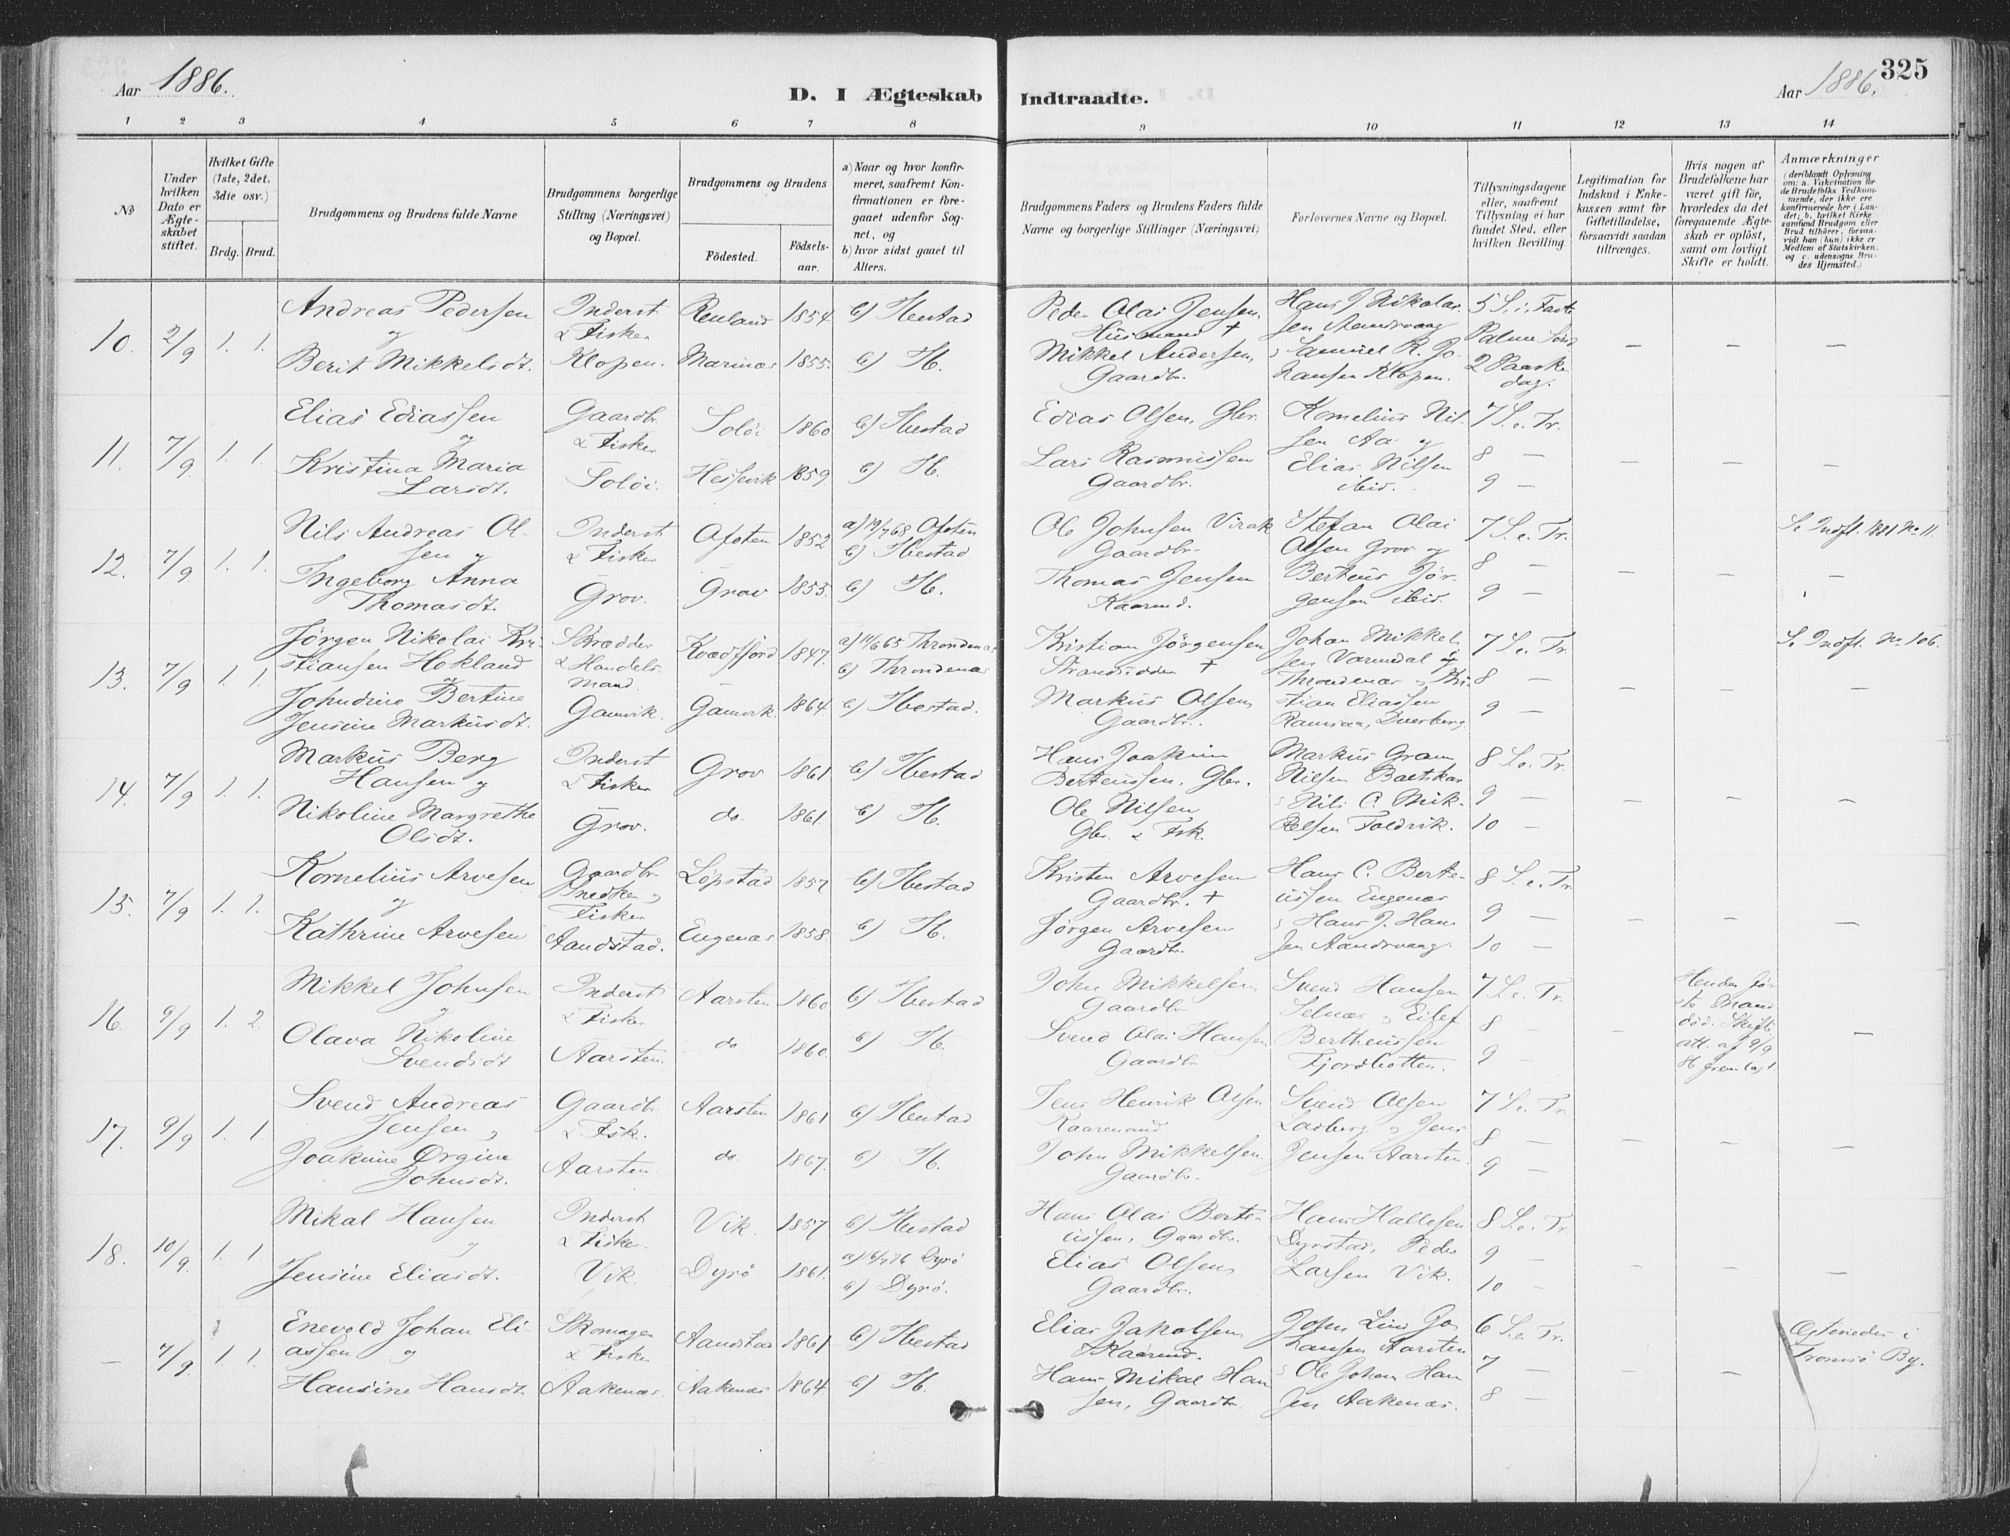 Aar 1886.
D. I Ægteskab Indtraadte.
325
Aar 1886.
1 2 3 4 5 6 7 8 9 10 11 12 13 14
No
Under hvilken Dato er Ægteskabet stiftet.
Hvilket Gifte (1ste, 2det, 3die osv.)
Brdg. Brud.
Brudgommens og Brudens fulde Navne
Brudgommens borgerlige Stilling (Næringsvei) og Bopæl.
Brudgommens og Brudens
Födested.
Födselsaar.
a) Naar og hvor konfirmeret, saafremt Konfirmationen er foregaaet udenfor Sognet, og
b) hvor sidst gaaet til Alters.
Brudgommens Faders og Brudens Faders fulde Navne og borgerlige Stillinger (Næringsvei)
Forlovernes Navne og Bopæl.
Tillysningsdagene eller, saafremt Tillysning ei har fundet Sted, efter hvilken Bevilling.
Legitimation for Indskud i Enkekassen samt for Giftetilladelse, forsaavidt saadan tiltrænges.
Hvis nogen af Brudefolkene har været gift för, hvorledes da det foregaaende Ægteskab er oplöst, samt om lovligt Skifte er holdt.
Anmærkninger (deriblandt Oplysning om: a. Vakcination for de Brudefolks Vedkommende, der ikke ere konfirmerede her i Landet; b. hvilket Kirkesamfund Brudgom eller Brud tilhörer, forsaavidt han (hun) ikke er Medlem af Statskirken, og c. udensogns Brudes Hjemsted.)
10. 2/9 1. 1.
Andreas Pedersen
og
Berit Mikkelsdt.
Inderst
& Fisker
Klopen.
Renland 1854 b) Ibestad
Marinæs 1855. b) Ib.
Peder Olai Jensen,
Husmand +
Mikkel Andersen,
Gaardbr.
Hans J Nikolai
sen Aandsvaag
s Samuel R. Jo
hansen Klopen.
5 S. i Faste
Palme Sönd
2 Paaske
dag.
— — —
11. 7/9 1. 1.
Elias Ediassen
og
Kristina Maria
Larsdt.
Gaardbr.
& Fisker
Soløi.
Soløi 1860 b) Ibestad
Hessevik 1859. b) Ib.
Edias Olsen, Gbr.
Lars Rasmussen
Gaardbr.
Kornelius Nil
sen Aa og
Elias Nilsen
ibid.
7 S. e. Tr.
8 —
9 —
— — —
12. 7/9 1. 1.
Nils Andreas Ol
sen og
Ingeborg Anna
Thomasdt.
Inderst
& Fisker
Grov.
Ofoten 1852 a) 19/7 68 Ofoten
b) Ibestad
Grov 1855. b) Ib.
Ole Johnsen Virak
Gaardbr.
Thomas Jensen
Kaarmd.
Stefan Olai
Olsen Grov og
Berteus Jör
gensen ibid.
7 S. e. Tr.
8 —
9 —
— — —
S. Indft. 1881 No 11.
13. 7/9 1. 1.
Jørgen Nikolai Kri
stiansen Hokland
og
Johndine Bertine
Jensine Markusdt.
Skrædder
& Handels
mand
Gamvik.
Kvædfjord 1847. a) 11/6 65 Throndenæs
b) Throndenæs
Gamvik. 1864 b) Ibestad.
Kristian Jørgensen
Strandsidder +
Markus Olsen,
Gaardbr.
Johan Mikkel
sen Varmedal i
Throndenæs og Kri
stian Eliassen
Ramsaa, Dverberg
7 S. e. Tr.
8 —
9 —
— — —
S. Indft. No. 106.
14. 7/9 1. 1.
Markus Berg
Hansen og
Nikoline Margrethe
Olsdt.
Inderst
& Fisker
Grov.
Grov 1861 b) Ibestad
do. 1861 b) Ib.
Hans Joakim
Berteussen, Gbr.
Ole Nilsen
Gbr. & Fsk.
Markus Gram
Nilsen Baltskar
s Nils C. Mik
kelsen Foldvik.
8 S. e. Tr.
9 —
10 —
— — —
15. 7/9 1. 1.
Kornelius Arvesen
og
Kathrine Arvesen
Gaardbr.
Snedker og
Fisker
Aandstad.
Löpstad 1857 b) Ibestad
Engenæs 1858. b) Ib.
Kristen Arvesen
Gaardbr. +
Jørgen Arvesen
Gaardbr.
Hans C. Berte
ussen Engenæs
s Hans J. Han
sen Aandsvaag.
8 S. e. Tr
9 —
10 —
— — —
16. 9/9 1. 2.
Mikkel Johnsen
og
Olava Nikoline
Svendsdt
Inderst
& Fisker
Aarsten.
Aarsten 1860 b) Ibestad
do 1860. b) Ib.
John Mikkelsen,
Gaardbr.
Svend Olai Hansen
Gaardbr.
Svend Hansen
Selnæs og Eilef
Bertheussen
Fjordbotten.
7 S. e. Tr.
8 —
9 —
—
Hendes för
ste Mand
död. Skifte
att. af 9/9
86 fremlagt.
—
17. 9/9 1. 1.
Svend Andreas
Jensen og
Joakime Ørgine
Johnsdt.
Gaardbr.
& Fisk.
Aarsten.
Aarsten 1861 b) Ibestad
do. 1867. b) Ib.
Jens Henrik Olsen
Kaarmand
John Mikkelsen.
Gaardbr.
Svend Olsen
Ladberg og Jens
Jensen Aarsten.
7 S. e. Tr
8 —
9 —
— — —
18. 10/9. 1. 1.
Mikal Hansen
og
Jensine Eliasdt.
Inderst
& Fisker.
Vik.
Vik. 1857 b) Ibestad
Dyrö 1861. a) 6/7 76 Dyrö
b) Dyrö.
Hans Olai Berte
ussen, Gaardbr.
Elias Olsen,
Gaardbr.
Hans Hallesen
Dyrstad, Peder
Larsen Vik.
8 S. e. Tr.
9 —
10 —
— — —
— 7/9. 1. 1.
Enevold Johan Eli
assen og
Hansine Hansdt.
Skomager
& Fisker
Aakenæs.
Aandstad 1861 b) Ibestad
Aakenæs 1864 b) Ib.
Elias Jakobsen,
Kaarmd.
Hans Mikal Han
sen, Gaardbr.
John Lind Jo
hansen Aarsten
s Ole Johan Han
sen Aakenæs.
6 S. e. Tr.
7 —
8 —
— —
Ægteviedes i
Tromsö By.